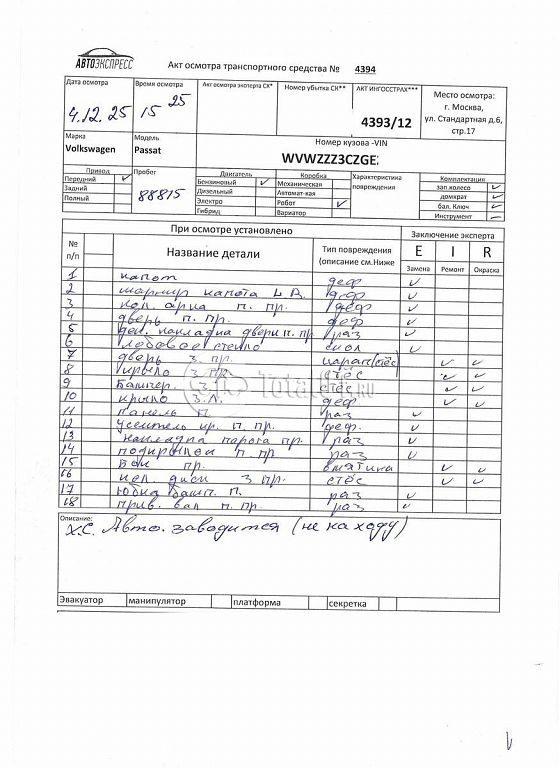 АВТОЭКСПРЕСС
Акт осмотра транспортного средства № 4394
Дата осмотра 4.12.25
Время осмотра 15 25
Акт осмотра эксперта СК*
Номер убытка СК**
АКТ ИНГОССТРАХ*** 4393/12
Место осмотра:
г. Москва,
ул. Стандартная д.6,
стр.17
Марка Volkswagen
Модель Passat
Номер кузова -VIN
WVWZZZ3CZGE
Привод
Передний ✓
Задний
Полный
Пробег 88815
Двигатель
Бензиновый ✓
Дизельный
Электро
Гибрид
Коробка
Механическая
Автомат-кая
Робот ✓
Вариатор
Характеристика
повреждения
Комплектация
зап.колесо ✓
домкрат ✓
бал. Ключ ✓
Инструмент –
При осмотре установлено
Заключение эксперта
№ п/п
Название детали
Тип повреждения
(описание см.Ниже
E I R
Замена Ремонт Окраска
1 капот деф ✓
2 шарнир капота деф ✓
3 арка п. пр. деф ✓
4 дверь п. пр. деф ✓
5 накладка двери п. пр раз ✓
6 лобовое стекло скол ✓
7 дверь з. пр. царап (стёс) ✓ ✓
8 крыло з. пр стёс ✓ ✓
9 бампер. з. стёс ✓ ✓
10 крыло з. л. деф ✓ ✓
11 панель п. раз ✓
12 усилитель кр. п. пр. деф. ✓
13 накладка порога пр. раз ✓
14 подкрылок п. пр раз ✓
15 пр. вмятина ✓ ✓
16 диск з. пр стёс ✓ ✓
17 юбка бамп. п. раз ✓
18 прив. вал п. пр. раз ✓
Total .RU
Описание:
Х.С. Авто. заводится (не на ходу)
Эвакуатор манипулятор платформа секретка